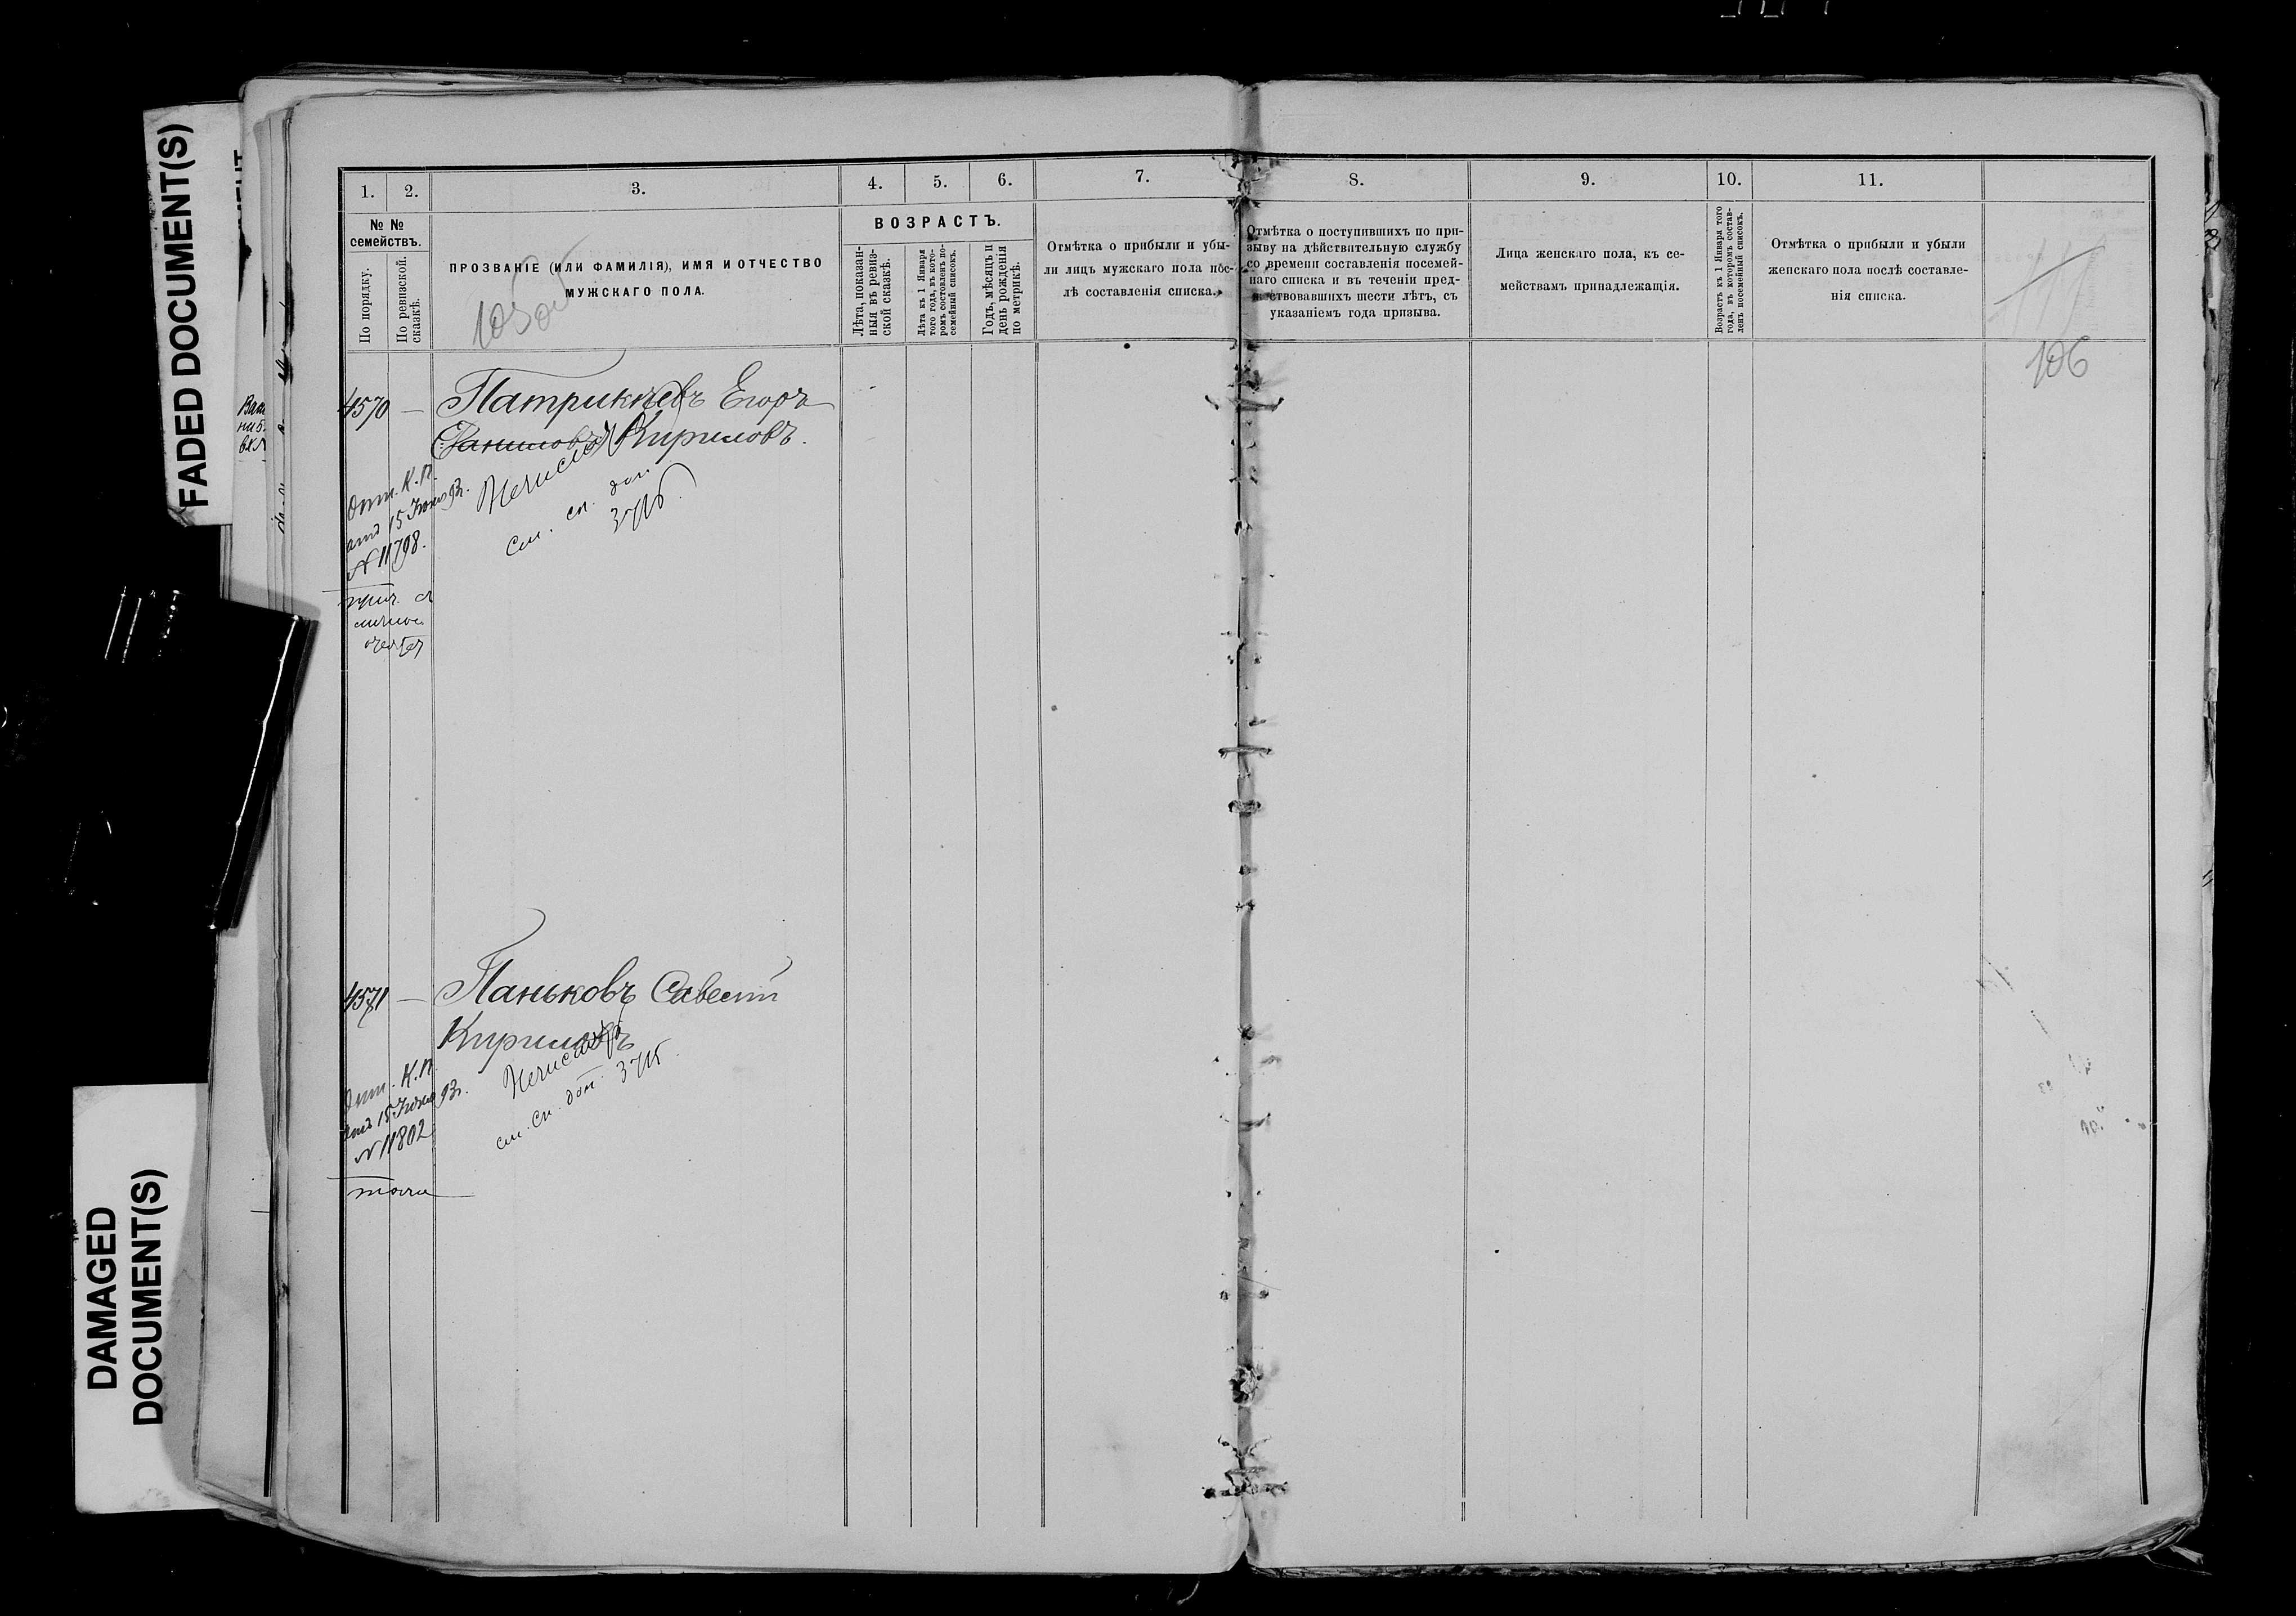 FADED DOCUMENT(S)
DAMAGED
DOCUMENT(S)
1.
2.
3.
4.
5.
6.
7.
8.
9.
10.
11.
№ №
семействъ.
По порядку.
По ревизской
сказкѣ.
ПРОЗВАНІЕ (ИЛИ ФАМИЛІЯ), ИМЯ И ОТЧЕСТВО
МУЖСКАГО ПОЛА.
ВОЗРАСТЪ.
Лѣта, показан-
ныя въ ревиз-
ской сказкѣ.
Лѣта къ 1 Января
того года, въ кото-
ромъ составленъ по-
семейный списокъ.
Годъ, мѣсяцъ и
день рожденія
по метрикѣ.
Отмѣтка о прибыли и убы-
ли лицъ мужскаго пола пос-
лѣ составленія списка.
Отмѣтка о поступившихъ по при-
зыву на дѣйствительную службу
со времени составленія посемей-
наго списка и въ теченіи пред-
шествовавшихъ шести лѣтъ, съ
указаніемъ года призыва.
Лица женскаго пола, къ се-
мействамъ принадлежащія.
Возрастъ къ 1 Января того
года, въ которомъ состав-
ленъ посемейный списокъ.
Отмѣтка о прибыли и убыли
женскаго пола послѣ составле-
нія списка.
105об
106
4570 — Патрикѣевъ Егоръ
Даниловъ Кириловъ.
К. П.
15 Іюня 93г.
№ 11798.
см. сп. доп.
3716.
4571 — Паньковъ Савелій
Кириловъ
К. П.
15 Іюня 93г.
№ 11802
см. сп. доп. 3716
тоже